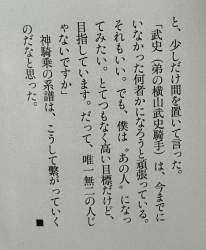 と、少しだけ間を置いて言った。
「武史（弟の横山武史騎手）は、今までに
いなかった何者かになろうと頑張っている。
それもいい。でも、僕は〝あの人〟になっ
てみたい。とてつもなく高い目標だけど、
目指しています。だって、唯一無二の人じ
ゃないですか」
　神騎乗の系譜は、こうして繋がっていく
のだなと思った。
■